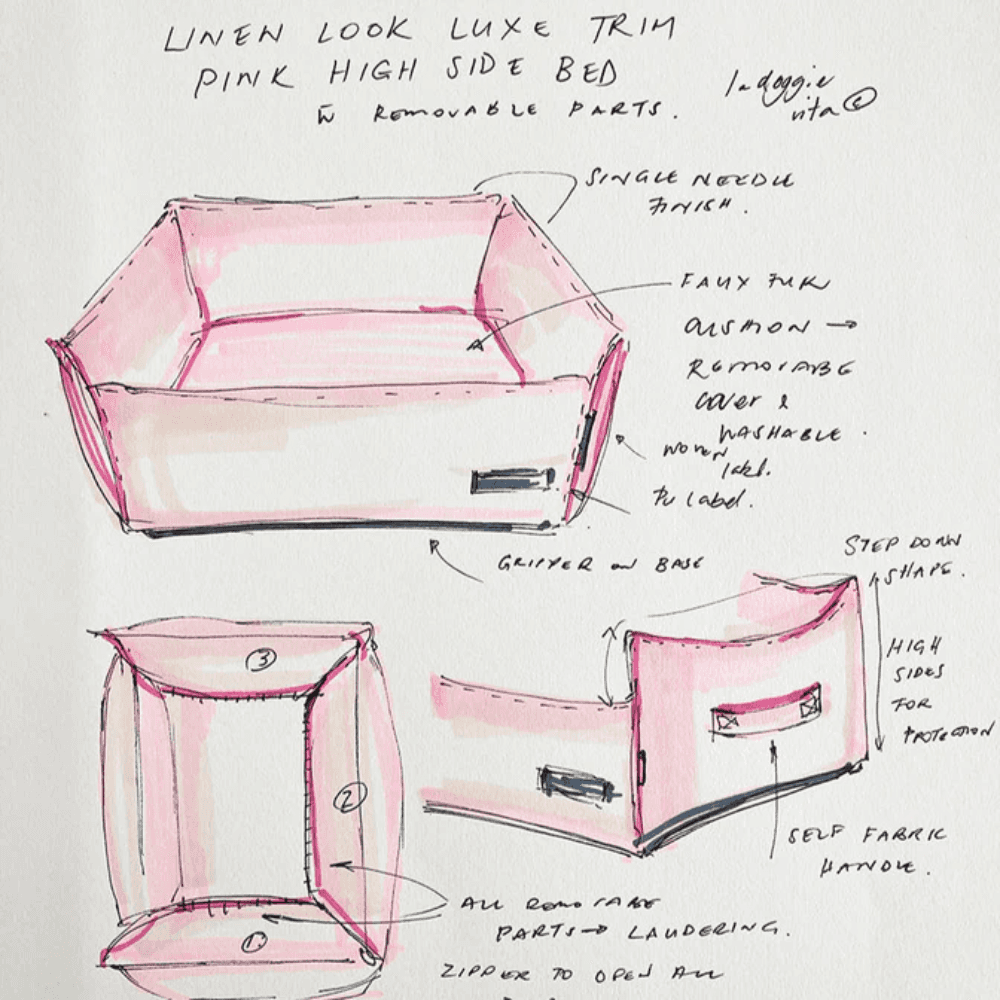 LINEN LOOK LUXE TRIM
PINK HIGH SIDE BED
W REMOVABLE PARTS.
la doggie
vita ©
SINGLE NEEDLE
FINISH.
FAUX FUR
CUSHION →
REMOVABE
COVER &
WASHABLE.
WOVEN
label.
PU label.
GRIPPER ON BASE
STEP DOWN
SHAPE.
HIGH
SIDES
FOR
PROTECTION
3
2
1
SELF FABRIC
HANDLE.
ALL REMOVABE
PARTS → LAUDERING.
ZIPPER TO OPEN ALL